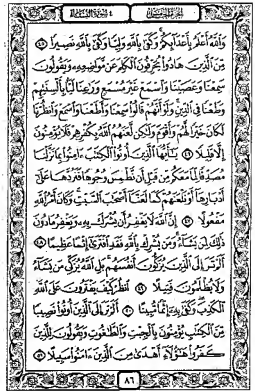 الجزء الخامس ٤ سورة النساء
وَاللَّهُ أَعْلَمُ بِأَعْدَائِكُمْ وَكَفَىٰ بِاللَّهِ وَلِيًّا وَكَفَىٰ بِاللَّهِ نَصِيرًا ٤٥
مِّنَ الَّذِينَ هَادُوا يُحَرِّفُونَ الْكَلِمَ عَن مَّوَاضِعِهِ وَيَقُولُونَ
سَمِعْنَا وَعَصَيْنَا وَاسْمَعْ غَيْرَ مُسْمَعٍ وَرَاعِنَا لَيًّا بِأَلْسِنَتِهِمْ
وَطَعْنًا فِي الدِّينِ وَلَوْ أَنَّهُمْ قَالُوا سَمِعْنَا وَأَطَعْنَا وَاسْمَعْ وَانظُرْنَا
لَكَانَ خَيْرًا لَّهُمْ وَأَقْوَمَ وَلَٰكِن لَّعَنَهُمُ اللَّهُ بِكُفْرِهِمْ فَلَا يُؤْمِنُونَ
إِلَّا قَلِيلًا ٤٦ يَا أَيُّهَا الَّذِينَ أُوتُوا الْكِتَابَ آمِنُوا بِمَا نَزَّلْنَا
مُصَدِّقًا لِّمَا مَعَكُم مِّن قَبْلِ أَن نَّطْمِسَ وُجُوهًا فَنَرُدَّهَا عَلَىٰ
أَدْبَارِهَا أَوْ نَلْعَنَهُمْ كَمَا لَعَنَّا أَصْحَابَ السَّبْتِ وَكَانَ أَمْرُ اللَّهِ
مَفْعُولًا ٤٧ إِنَّ اللَّهَ لَا يَغْفِرُ أَن يُشْرَكَ بِهِ وَيَغْفِرُ مَا دُونَ
ذَٰلِكَ لِمَن يَشَاءُ وَمَن يُشْرِكْ بِاللَّهِ فَقَدِ افْتَرَىٰ إِثْمًا عَظِيمًا ٤٨
أَلَمْ تَرَ إِلَى الَّذِينَ يُزَكُّونَ أَنفُسَهُم بَلِ اللَّهُ يُزَكِّي مَن يَشَاءُ
وَلَا يُظْلَمُونَ فَتِيلًا ٤٩ انظُرْ كَيْفَ يَفْتَرُونَ عَلَى اللَّهِ
الْكَذِبَ وَكَفَىٰ بِهِ إِثْمًا مُّبِينًا ٥٠ أَلَمْ تَرَ إِلَى الَّذِينَ أُوتُوا نَصِيبًا
مِّنَ الْكِتَابِ يُؤْمِنُونَ بِالْجِبْتِ وَالطَّاغُوتِ وَيَقُولُونَ لِلَّذِينَ
كَفَرُوا هَٰؤُلَاءِ أَهْدَىٰ مِنَ الَّذِينَ آمَنُوا سَبِيلًا ٥١
٨٦